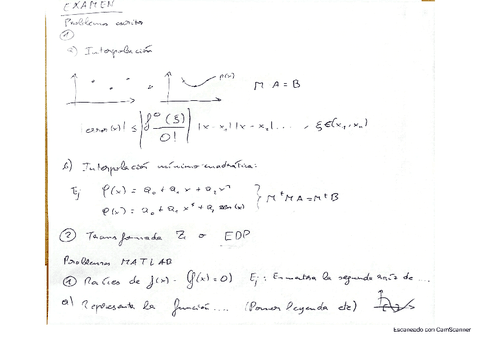 EXAMEN
Problemas escritos
①
a) Interpolación
p(x)
M A = B
|error(x)| ≤ |f⁰(ξ)/0!| |x-x₀| |x-x₁| ... , ξ∈(x₁,xₙ)
b) Interpolación mínimo cuadrática:
Ej φ(x) = a₀ + a₁x + a₂x²
φ(x) = a₀ + a₁x² + a₂ sen(x) } MᵗMA = MᵗB
② Transformada Z o EDP
Problemas MATLAB
① Raíces de f(x). (f(x)=0) Ej: Encuentra la segunda raíz de ...
a) Representa la función .... (Poner leyenda etc)
Escaneado con CamScanner